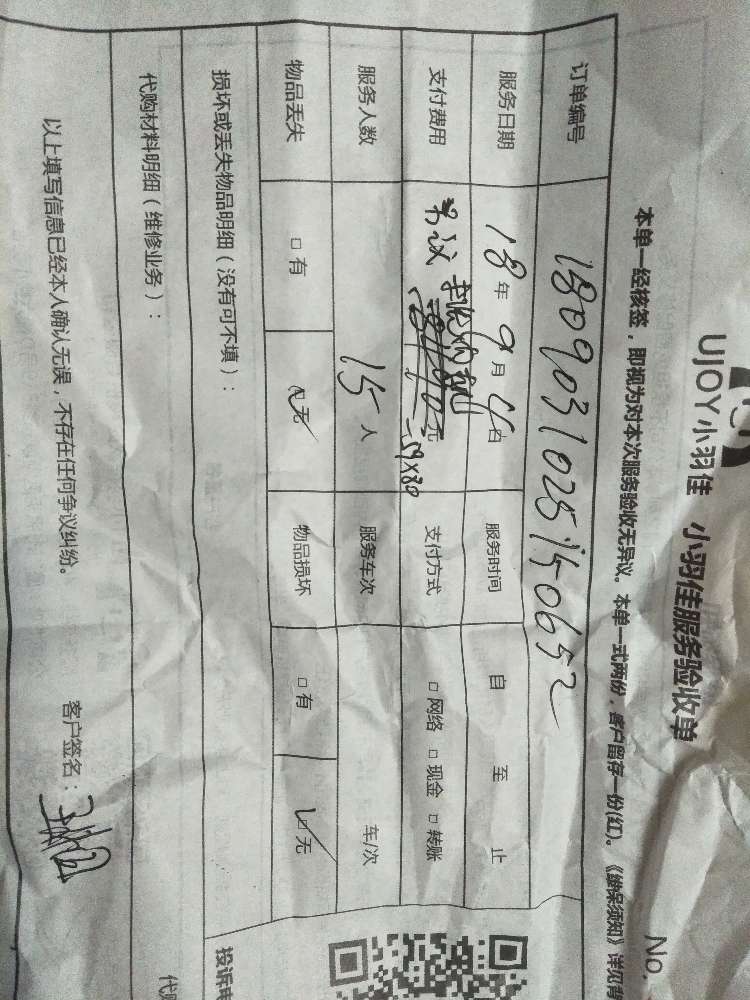 UJOY小羽佳 小羽佳服务验收单
No.
本单一经核签，即视为对本次服务验收无异议。本单一式两份，客户留存一份(红)。《维保须知》详见背
订单编号 1809031025150652
服务日期 18年9月4日 服务时间 自 至 止
支付费用 另议 元 -59×80 支付方式 □网络 □现金 □转账
服务人数 15人 服务车次 车/次
物品丢失 □有 □无 物品损坏 □有 □无
损坏或丢失物品明细（没有可不填）：
代购材料明细（维修业务）：
以上填写信息已经本人确认无误，不存在任何争议纠纷。
客户签名：
投诉电
代